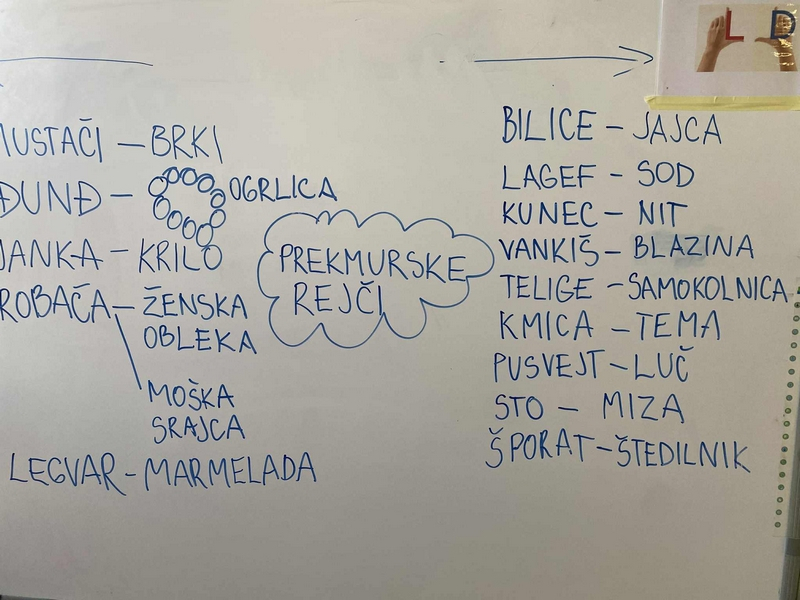 MUSTAČI – BRKI
ĐUNĐ – OGRLICA
JANKA – KRILO
ROBAČA – ŽENSKA
OBLEKA
MOŠKA
SRAJCA
LEGVAR – MARMELADA
PREKMURSKE
REJČI
L D
BILICE – JAJCA
LAGEF – SOD
KUNEC – NIT
VANKIŠ – BLAZINA
TELIGE – SAMOKOLNICA
KMICA – TEMA
PUSVEJT – LUČ
STO – MIZA
ŠPORAT – ŠTEDILNIK